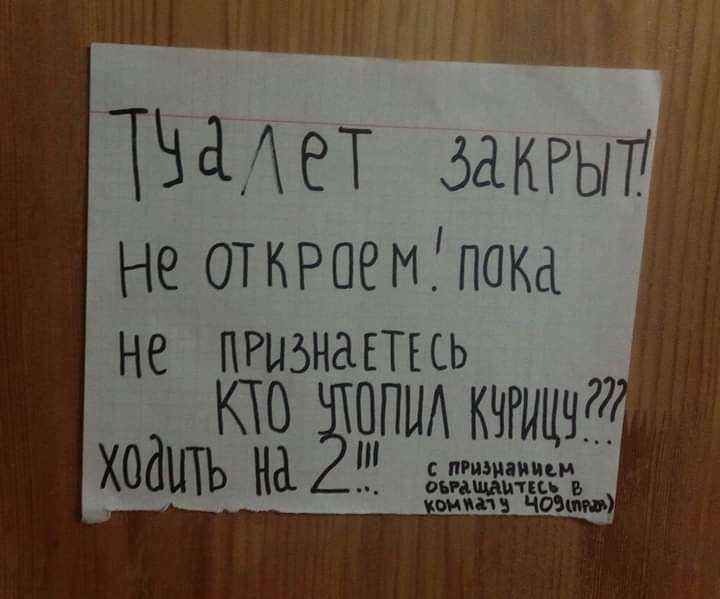 Туалет закрыт!
Не откроем! пока
не признаетесь
кто утопил курицу???
ходить на 2!!!
с признанием
обращайтесь в
комнату 409(прав)